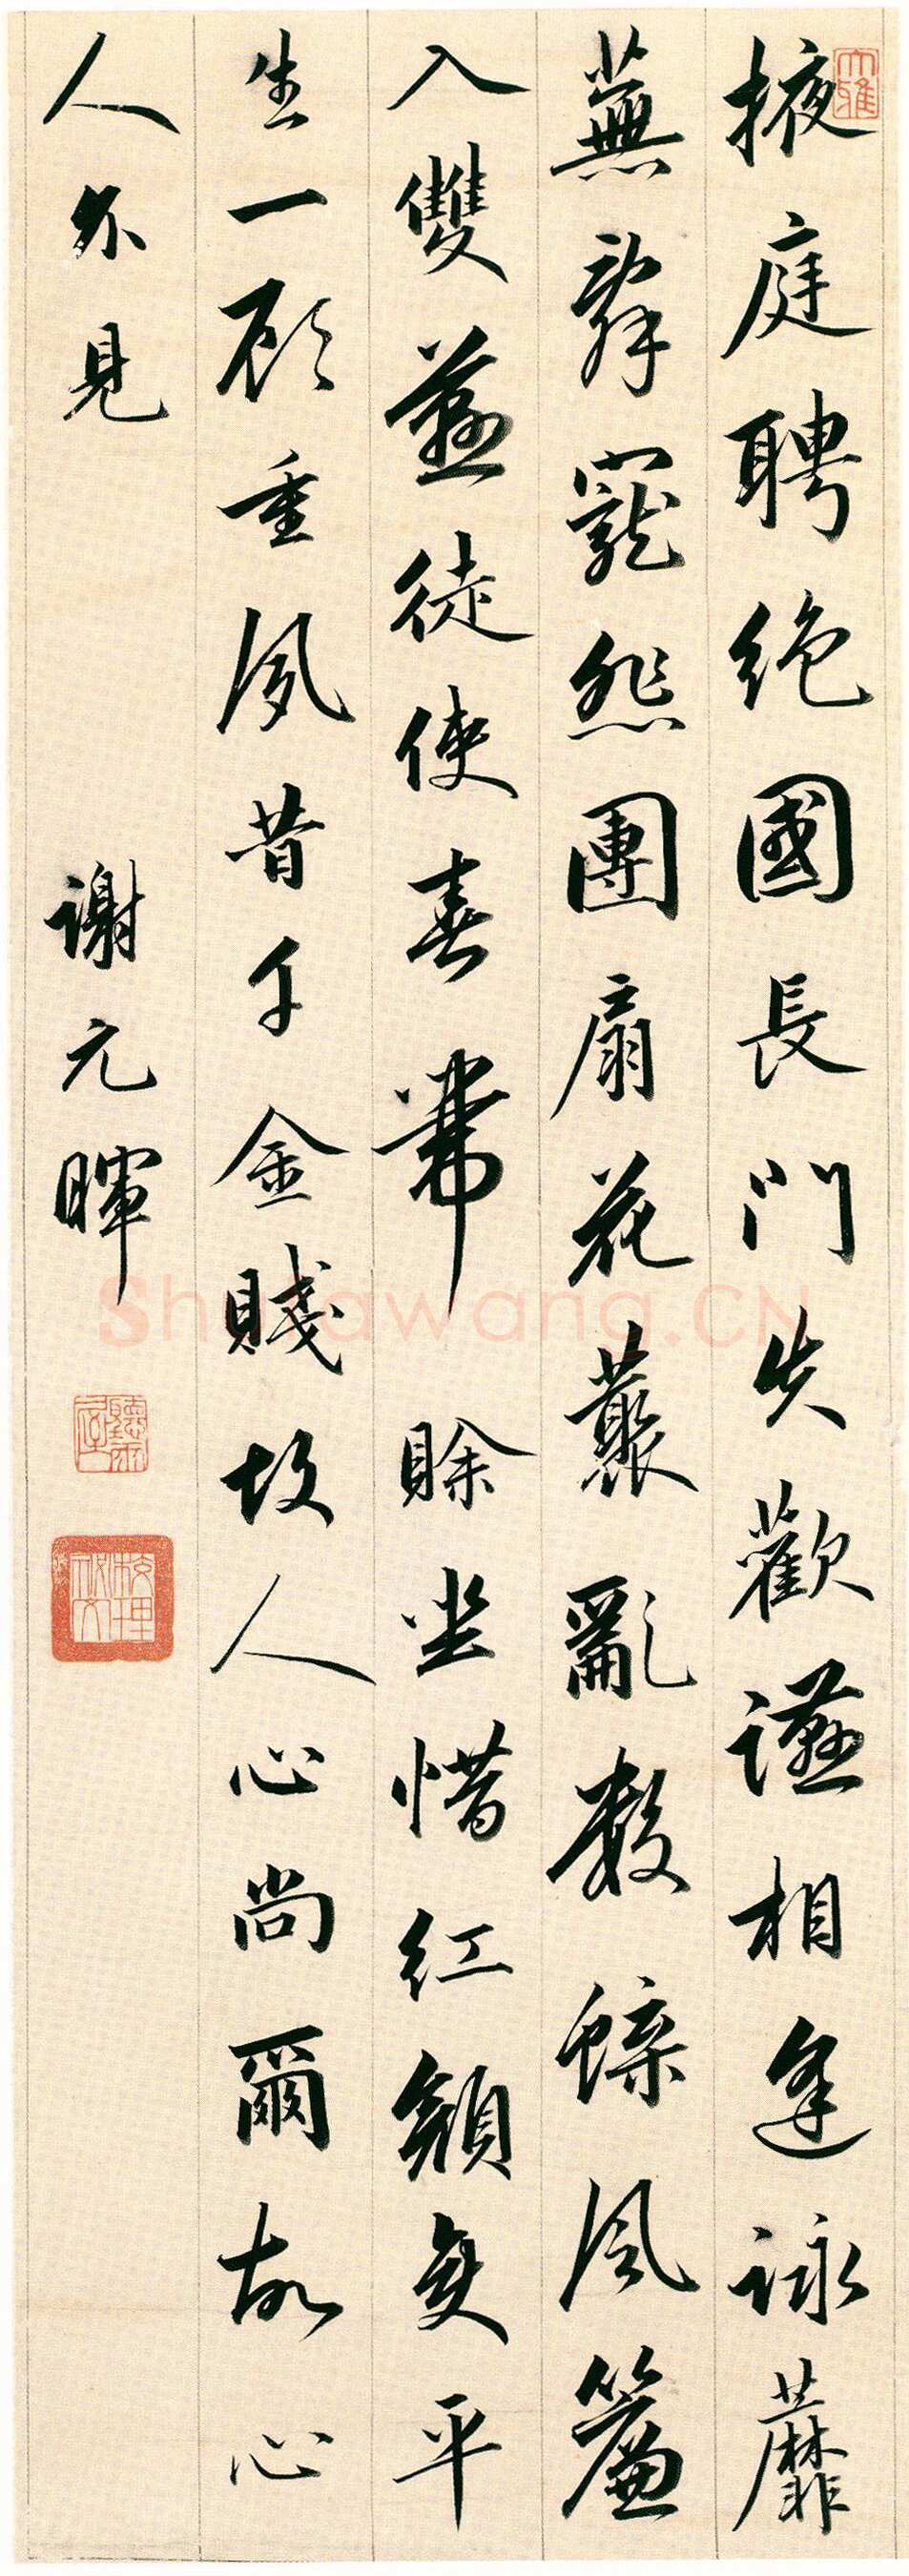 大雅
掖庭聘絕國長門失歡讌相逢詠蘼
蕪辭寵怨團扇花藂亂數蝶風簾
入雙燕徒使春帶賖坐惜紅顏變平
生一顧重夙昔千金賤故人心尚爾故心
人不見
謝元暉
校理秘文
Shufawang.CN